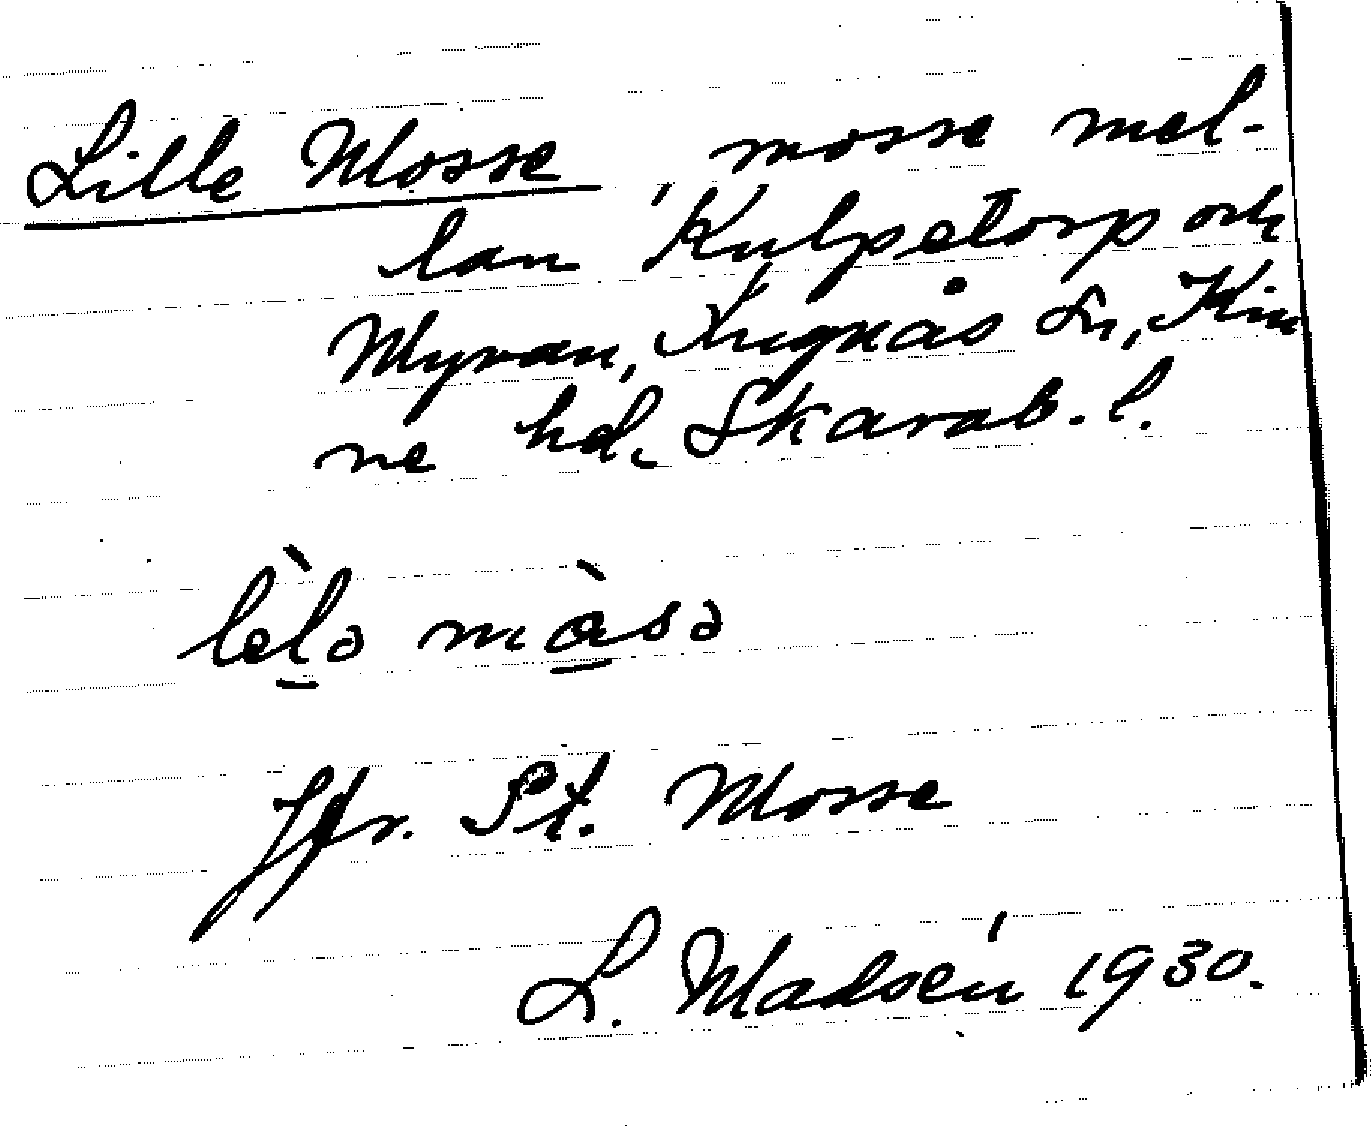 Lille Mosse, mosse mel-
lan Kulpetorp och
Myran, Fugnås Sn, Kin
ne hd. Skarab. l.
lèlə màsə
Jfr. St. Mosse
L. Madsén 1930.